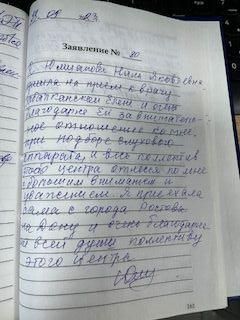 Заявление № 20
Я Юмшанова Нам Яковлевна
пришла на прием к врачу
Елене и очень
благодарна Ей за внимательное
ное отношение ко мне,
при подборе слухового
аппарата, и весь коллектив
этого центра отнесся ко мне
с хорошим вниманием и
уважением. Я приехала
сама с города Ростова
на Дону и очень благодарна
от всей души коллективу
этого Центра